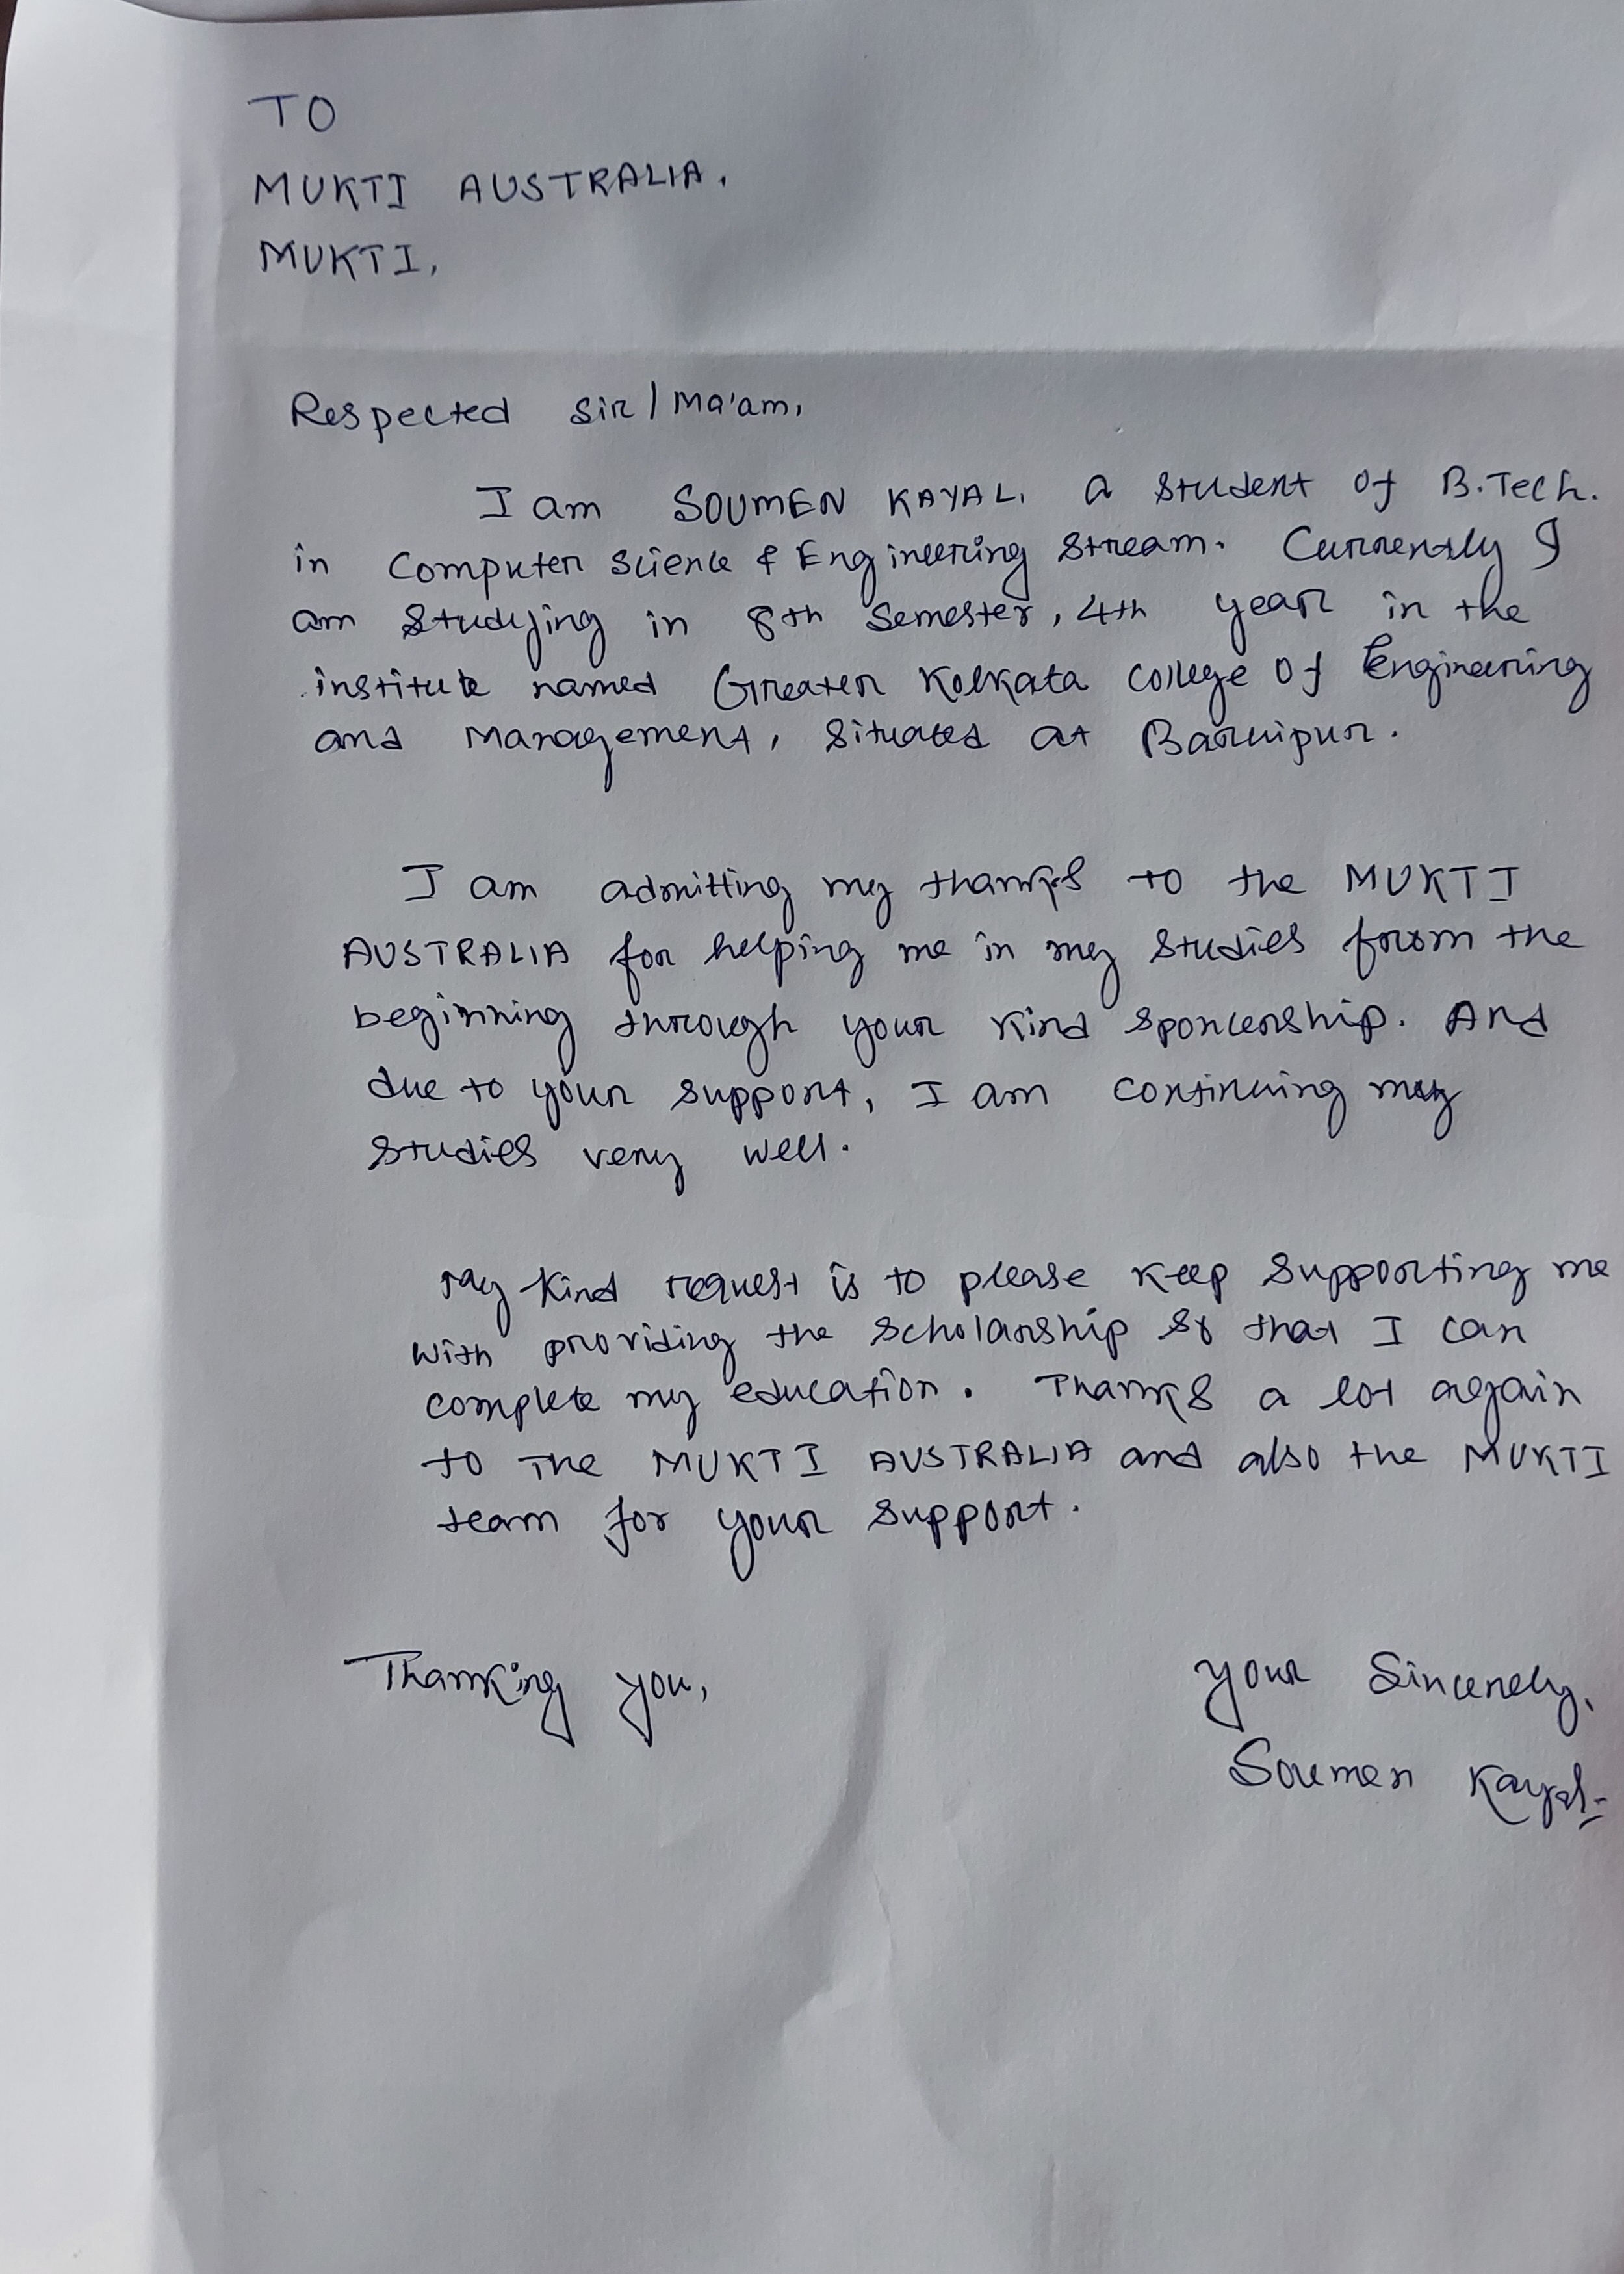 TO
MUKTI AUSTRALIA.
MUKTI,
Respected Sir/Ma'am,
I am SOUMEN KAYAL, a student of B.Tech.
in Computer Science & Engineering Stream. Currently I
am studying in 8th Semester, 4th year in the
institute named Greater Kolkata College of Engineering
and Management, situated at Baruipur.
I am admitting my thanks to the MUKTI
AUSTRALIA for helping me in my studies from the
beginning through your kind sponcership. And
due to your support, I am continuing my
studies very well.
My kind request is to please keep supporting me
with providing the scholarship so that I can
complete my education. Thanks a lot again
to the MUKTI AUSTRALIA and also the MUKTI
team for your support.
Thanking you,
Your Sincerely,
Soumen Kayal